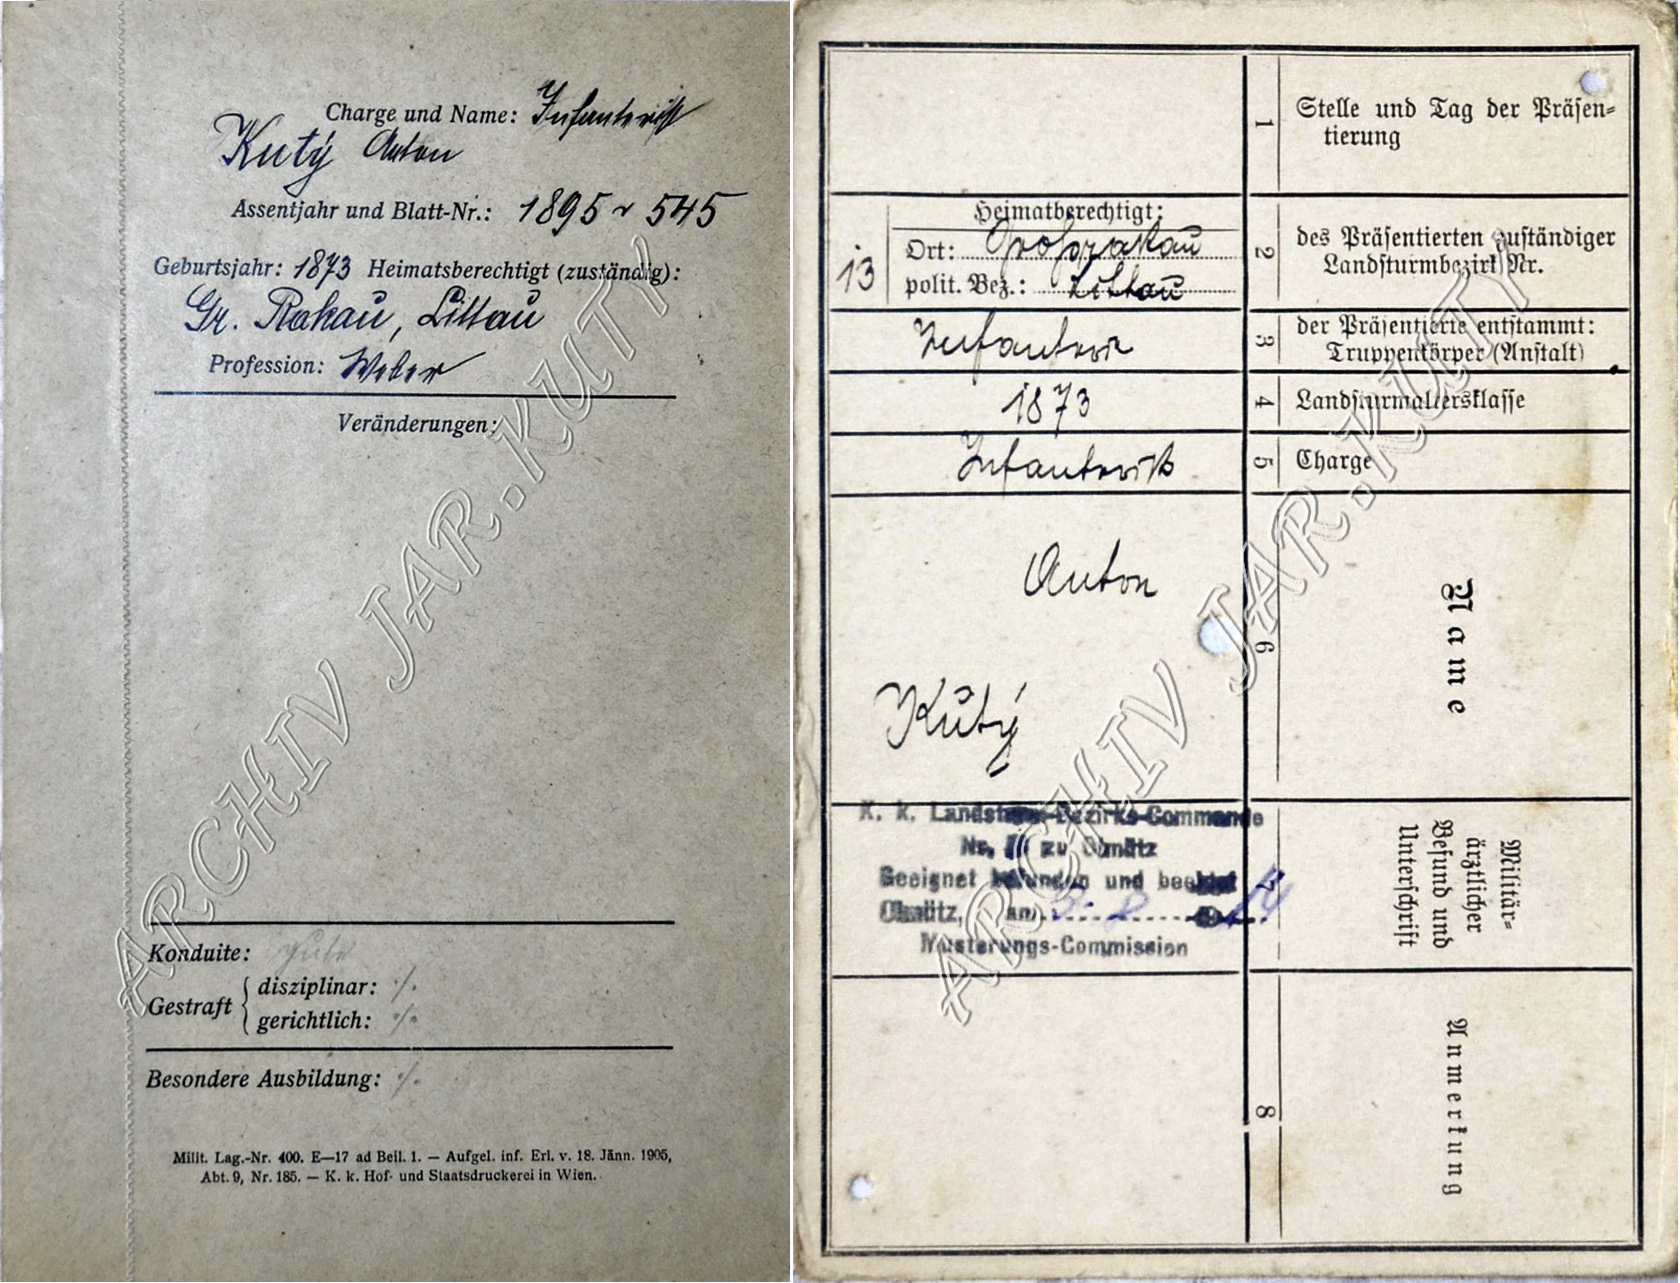 Charge und Name: Infanterist
Kutý Anton
Assentjahr und Blatt-Nr.: 1895 545
Geburtsjahr: 1873 Heimatsberechtigt (zuständig):
Gr. Rakau, Littau
Profession: Weber
Veränderungen:
Konduite: Gute
Gestraft { disziplinar: ·/·
gerichtlich: ·/·
Besondere Ausbildung: ·/·
Milit. Lag.-Nr. 400. E—17 ad Beil. 1. — Aufgel. inf. Erl. v. 18. Jänn. 1905,
Abt. 9, Nr. 185. — K. k. Hof- und Staatsdruckerei in Wien.
ARCHIV JAR.KUTÝ
1 Stelle und Tag der Präsen-
tierung
13 Heimatberechtigt:
Ort: Großrakau
polit. Bez.: Littau
2 des Präsentierten zuständiger
Landsturmbezirk Nr.
Infanterie
3 der Präsentierte entstammt:
Truppenkörper (Anstalt)
1873
4 Landsturmaltersklasse
Infanterist
5 Charge
Anton
Kutý
6 Name
K. k. Landsturm-Bezirks-Commando
Nr. zu Olmütz
Geeignet befunden und beeidet
Olmütz, am
Musterungs-Commission
7 Militär-
ärztlicher
Befund und
Unterschrift
8 Anmerkung
ARCHIV JAR.KUTÝ